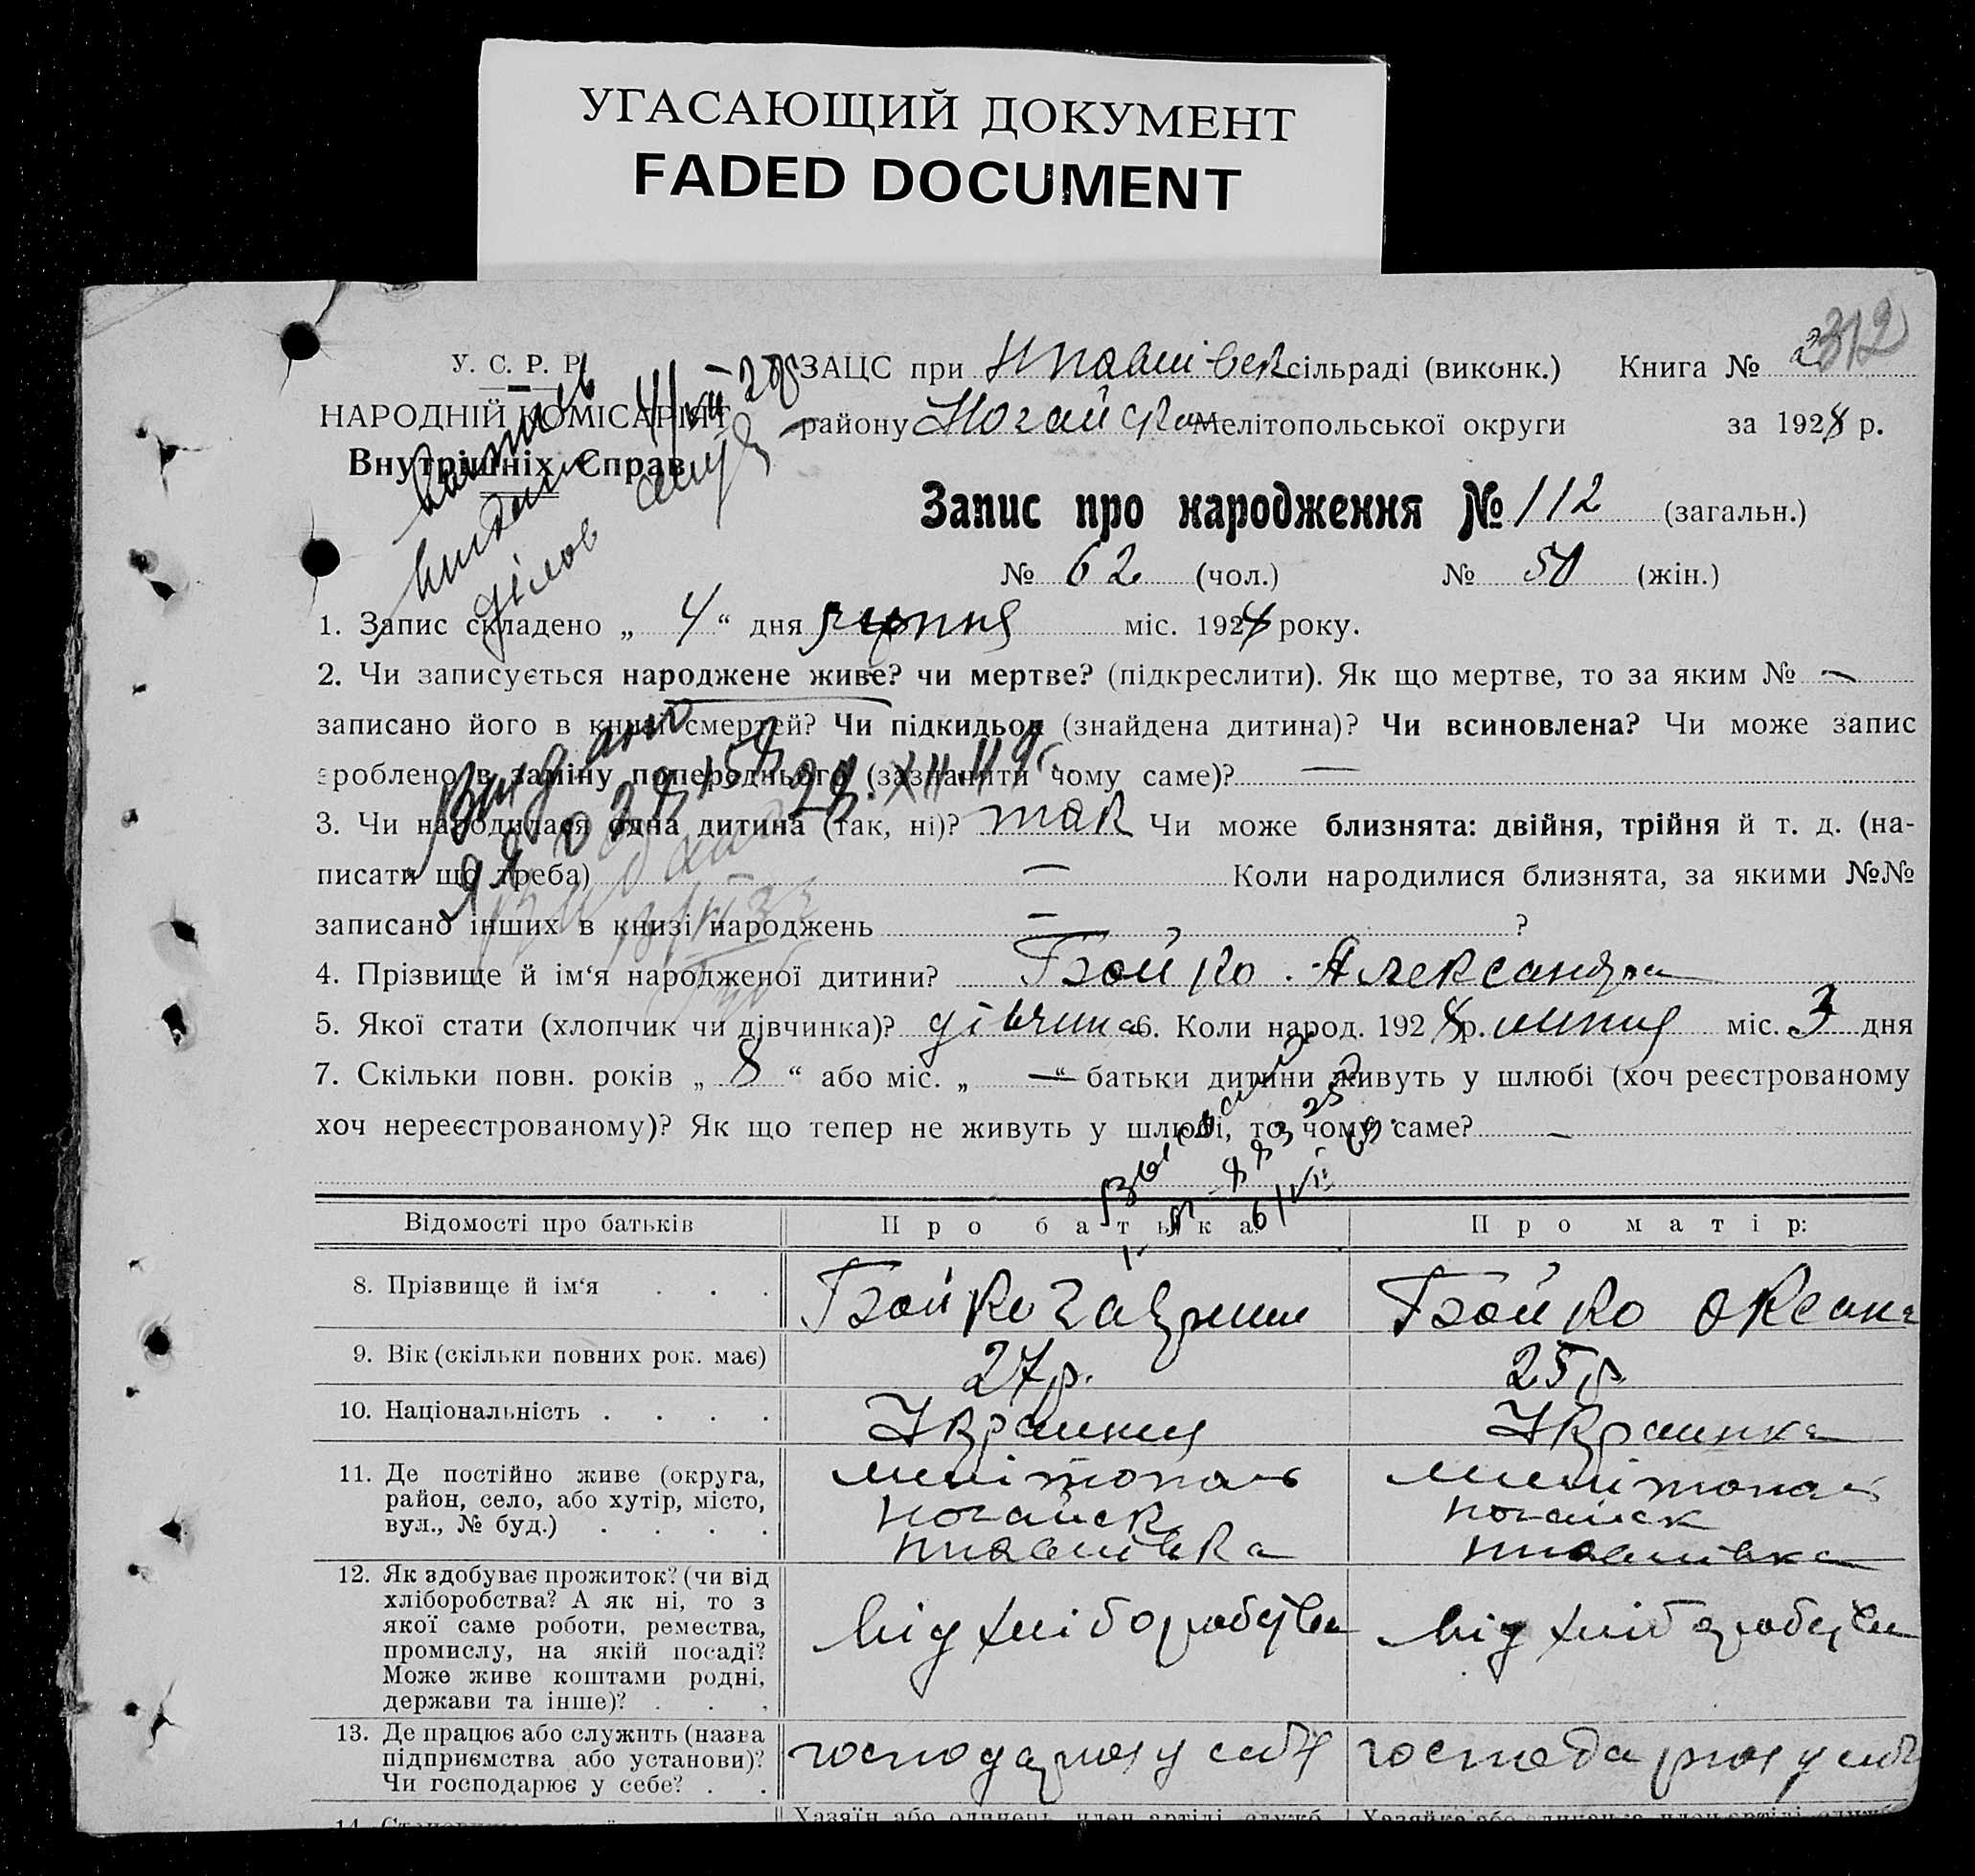 УГАСАЮЩИЙ ДОКУМЕНТ
FADED DOCUMENT
312
У. С. Р. Р.
НАРОДНІЙ КОМІСАРІЯТ
Внутрішніх Справ
ЗАЦС при сільраді (виконк.) Книга № 2
району Ногайськ Мелітопольської округи за 1928 р.
Запис про народження № 112 (загальн.)
№ 62 (чол.) № 50 (жін.)
1. Запис складено „ 4 “ дня липня міс. 1928 року.
2. Чи записується народжене живе? чи мертве? (підкреслити). Як що мертве, то за яким № —
записано його в книзі смертей? Чи підкидьок (знайдена дитина)? Чи всиновлена? Чи може запис
зроблено в заміну попереднього (зазначити чому саме)? —
3. Чи народилася одна дитина (так, ні)? так Чи може близнята: двійня, трійня й т. д. (на-
писати що треба) — Коли народилися близнята, за якими №№
записано інших в книзі народжень — ?
4. Прізвище й ім‘я народженої дитини? Бойко Александра
5. Якої стати (хлопчик чи дівчинка)? дівчина 6. Коли народ. 1928 р. липня міс. 3 дня
7. Скільки повн. років „ 8 “ або міс. „ — “ батьки дитини живуть у шлюбі (хоч реєстрованому
хоч нереєстрованому)? Як що тепер не живуть у шлюбі, то чому саме? —
Відомості про батьків Про батька: Про матір:
8. Прізвище й ім‘я . . . Бойко Гаврило Бойко Оксана
9. Вік (скільки повних рок. має) 27 р. 25 р.
10. Національність . . . . Украинец Украинка
11. Де постійно живе (округа,
район, село, або хутір, місто,
вул., № буд.) . . . .
Мелітополь Мелітополь
Ногайск Ногайск
12. Як здобуває прожиток? (чи від
хліборобства? А як ні, то з
якої саме роботи, ремества,
промислу, на якій посаді?
Може живе коштами родні,
держави та інше)? . . .
від хліборобства від хліборобства
13. Де працює або служить (назва
підприємства або установи)?
Чи господарює у себе? . .
господарює у себе господарює у себе